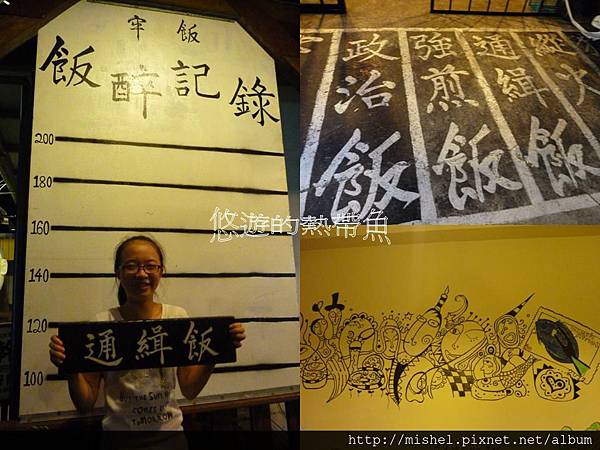 牢飯
飯醉記錄
200
180
160
140
120
100
通緝飯
BUT THE SUN
COMES UP
TOMORROW
政治飯
強煎飯
通緝飯
縱火
悠遊的熱帶魚
http://mishel.pixnet.net/album